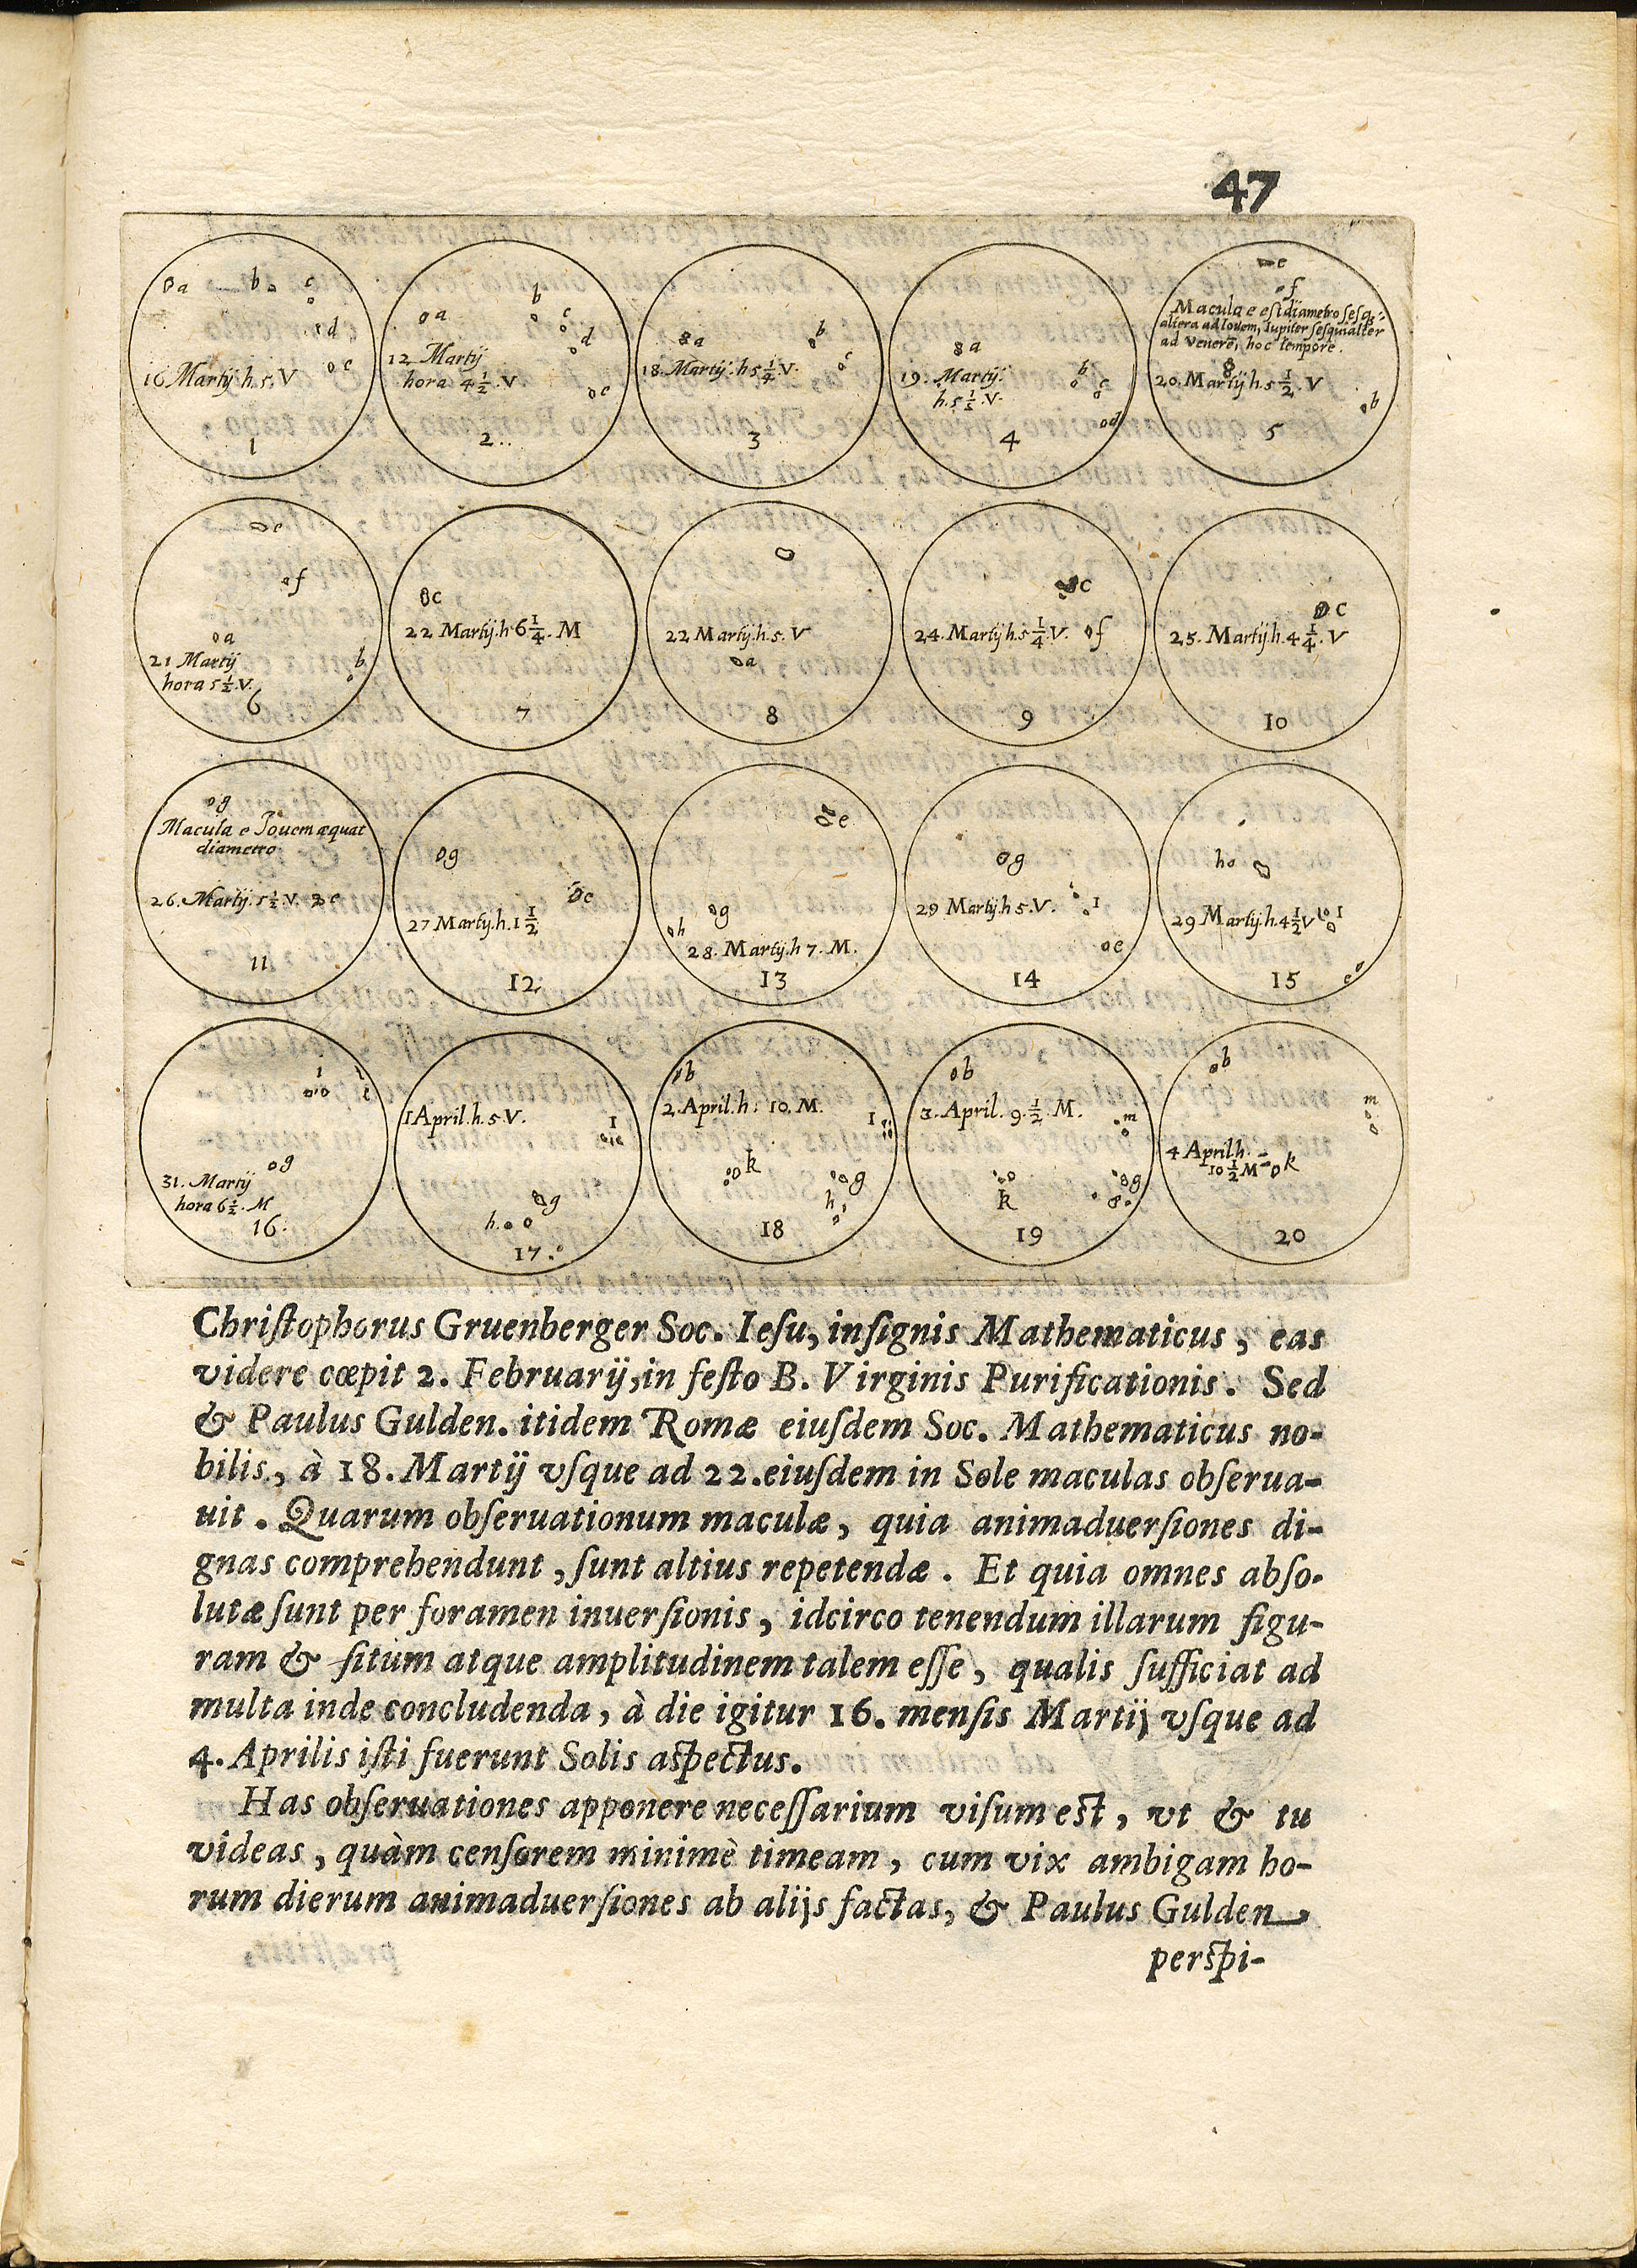 47
a b c
d
e
16 Martij h. 5. V
1
a b c
d
12 Martij
hora 4 1/2 . V
e
2..
a b
c
18. Martij. h 5 1/4 . V.
3
a
b
c
19. Martij.
h. 5 1/2 . V.
d
4
e
f
Macula e est diametro sesqui-
altera ad Iovem, Iupiter sesquialter
ad venerē, hoc tempore.
20. Martij h. 5 1/2 . V
b
5
e
f
a
21 Martij
b
hora 5 1/2 . V.
6
c
22 Martij. h. 6 1/4 . M
7
22 Martij. h. 5. V
a
8
c
24. Martij h. 5 1/4 . V. f
9
c
25. Martij. h. 4 1/4 . V
10
g
Macula e Iouem æquat
diametro
26. Martij. 5 1/2 . V. e
11
g
e
27 Martij. h. 1 1/2
12
e
g
h
28. Martij. h 7. M.
13
g
29 Martij. h 5. V. 1
e
14
h
29 Martij. h. 4 1/2 V 1
e
15
1
e
g
31. Martij
hora 6 1/2 . M
16.
1 April. h. 5. V.
1
g
h.
17.
b
2. April. h. 10. M.
1
k
g
h
18
b
3. April. 9. 1/2 . M.
m
g
k
19
b
m
4 April h.
10 1/2 M k
20
Christophorus Gruenberger Soc. Iesu, insignis Mathematicus, eas
videre cœpit 2. Februarij, in festo B. Virginis Purificationis. Sed
& Paulus Gulden. itidem Romæ eiusdem Soc. Mathematicus no-
bilis, à 18. Martij vsque ad 22. eiusdem in Sole maculas obserua-
uit. Quarum obseruationum maculæ, quia animaduersiones di-
gnas comprehendunt, sunt altius repetendæ. Et quia omnes abso-
lutæ sunt per foramen inuersionis, idcirco tenendum illarum figu-
ram & situm atque amplitudinem talem esse, qualis sufficiat ad
multa inde concludenda, à die igitur 16. mensis Martij vsque ad
4. Aprilis isti fuerunt Solis aspectus.
Has obseruationes apponere necessarium visum est, vt & tu
videas, quàm censorem minimè timeam, cum vix ambigam ho-
rum dierum animaduersiones ab alijs factas, & Paulus Gulden
perspi-